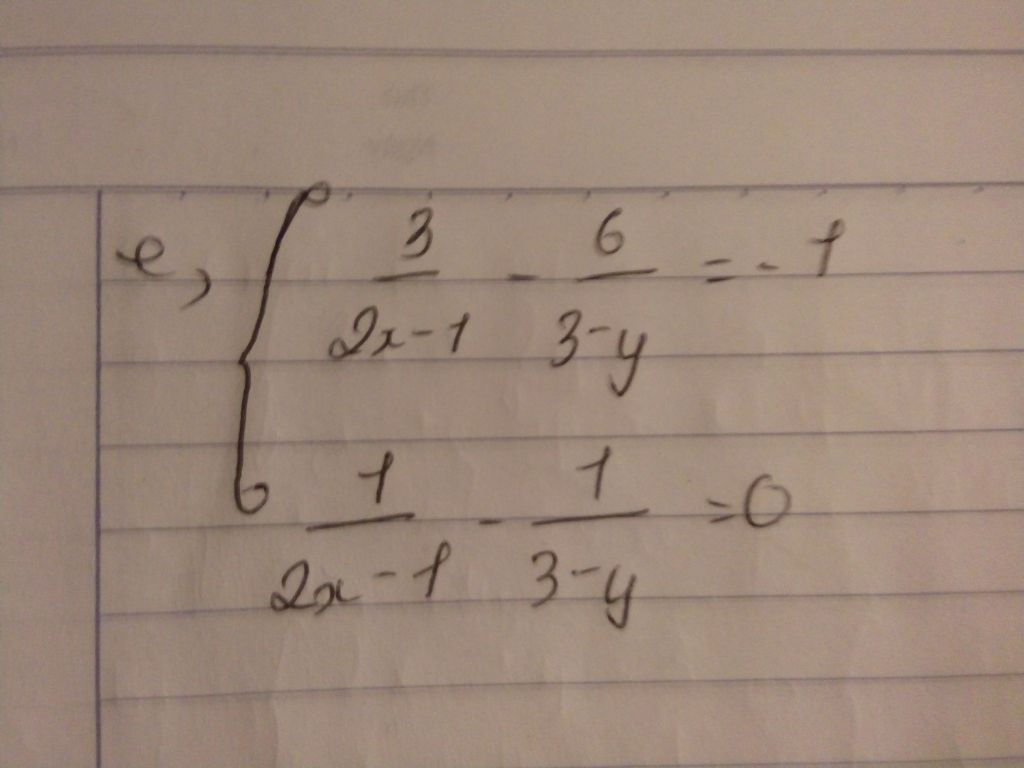 e, { 3/(2x-1) - 6/(3-y) = -1
1/(2x-1) - 1/(3-y) = 0